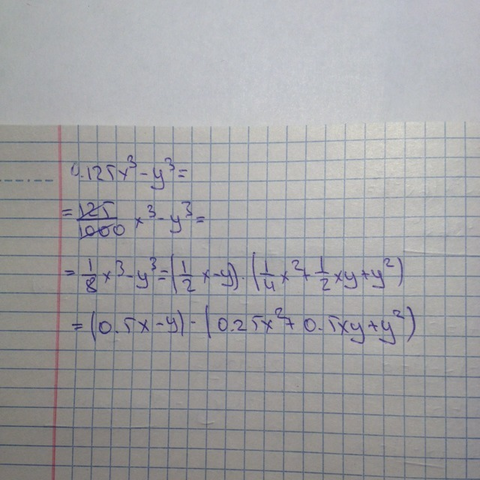 0.125x³-y³=
=125/1000 x³-y³=
=1/8x³-y³=(1/2x-y)·(1/4x²+1/2xy+y²)
=(0.5x-y)-(0.25x²+0.5xy+y²)